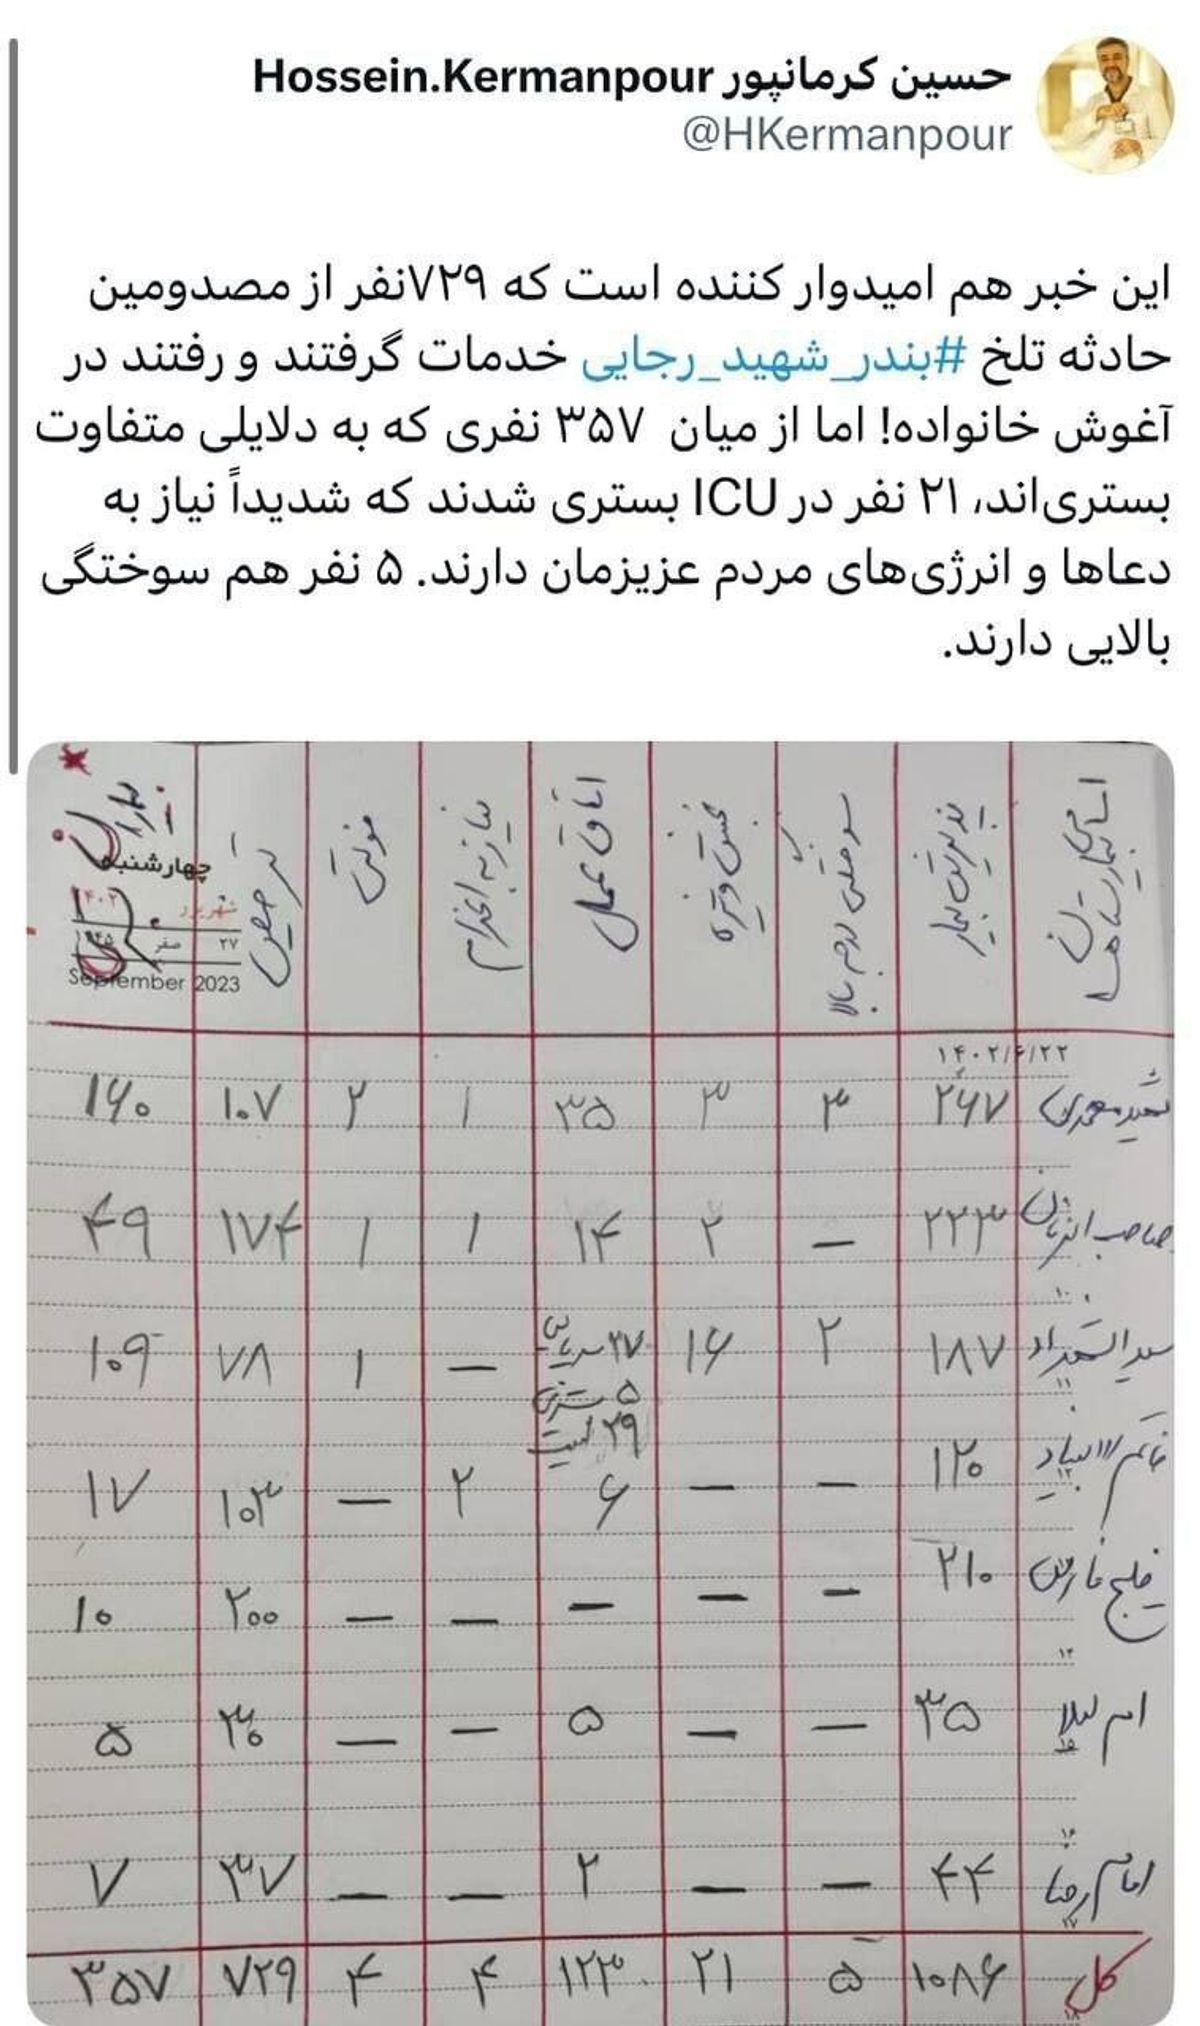 حسین کرمانپور Hossein.Kermanpour
@HKermanpour
این خبر هم امیدوار کننده است که ۷۲۹نفر از مصدومین
حادثه تلخ #بندر_شهید_رجایی خدمات گرفتند و رفتند در
آغوش خانواده! اما از میان ۳۵۷ نفری که به دلایلی متفاوت
بستری‌اند، ۲۱ نفر در ICU بستری شدند که شدیداً نیاز به
دعاها و انرژی‌های مردم عزیزمان دارند. ۵ نفر هم سوختگی
بالایی دارند.
اسامی بیمارستان ها پذیرش بیمار سوختگی درجه بالا بخش ویژه اتاق عمل نیاز به اعزام فوتی ترخیص
چهارشنبه
شهریور ۱۴۰۲
۲۷ صفر ۱۴۴۵
September 2023
۱۴۰۲/۶/۲۲
شهید محمدی ۲۶۷ ۳ ۳ ۳۵ ۱ ۲ ۱۰۷ ۱۶۰
صاحب الزمان ۲۲۳ – ۲ ۱۴ ۱ ۱ ۱۷۴ ۴۹
۱۰
سید الشهداء ۱۸۷ ۲ ۱۶ ۳۷ سرپایی – ۱ ۷۸ ۱۰۹
۱۱
۵
۲۹
خاتم الانبیاء ۱۲۰ – – ۶ ۲ – ۱۰۳ ۱۷
۱۲
خلیج فارس ۲۱۰ – – – – – ۲۰۰ ۱۰
۱۴
ام لیلا ۳۵ – – ۵ – – ۳۰ ۵
۱۵
۱۶
امام رضا ۴۴ – – ۲ – – ۳۷ ۷
۱۷
کل ۱۰۸۶ ۵ ۲۱ ۱۲۳ ۴ ۴ ۷۲۹ ۳۵۷
۱۸